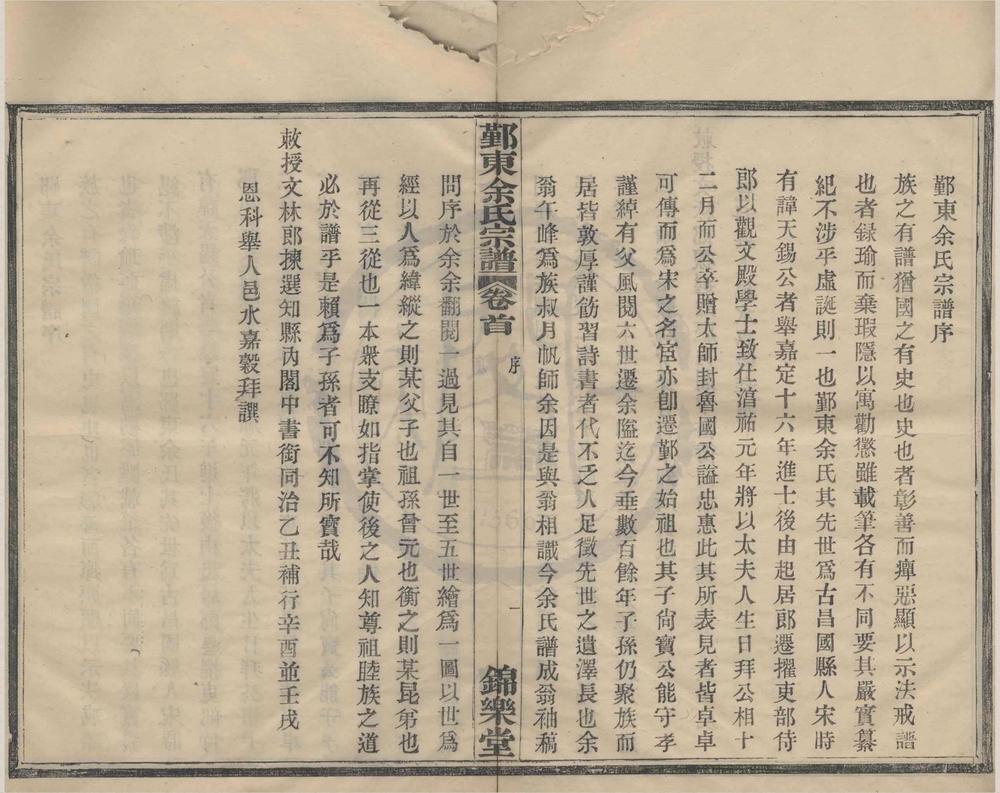 鄞東余氏宗譜序
族之有譜猶國之有史也史也者彰善而癉惡顯以示法戒譜
也者録瑜而棄瑕隱以寓勸懲雖載筆各有不同要其嚴實纂
紀不涉乎虛誕則一也鄞東余氏其先世爲古昌國縣人宋時
有諱天錫公者舉嘉定十六年進士後由起居郎遷擢吏部侍
郎以觀文殿學士致仕淯祐元年將以太夫人生日拜公相十
二月而公卒贈太師封魯國公謚忠惠此其所表見者皆卓卓
可傳而爲宋之名宦亦卽遷鄞之始祖也其子尙寶公能守孝
謹綽有父風閱六世遷余隘迄今垂數百餘年子孫仍聚族而
居皆敦厚謹飭習詩書者代不乏人足徵先世之遺澤長也余
翁午峰爲族叔月帆師余因是與翁相識今余氏譜成翁袖稿
鄞東余氏宗譜 卷首 序 一 錦樂堂
問序於余余翻閱一過見其自一世至五世繪爲一圖以世爲
經以人爲緯縱之則某父子也祖孫曾元也衡之則某昆弟也
再從三從也一本衆支瞭如指掌使後之人知尊祖睦族之道
必於譜乎是賴爲子孫者可不知所寶哉
敕授文林郎揀選知縣內閣中書銜同治乙丑補行辛酉並壬戌
恩科舉人邑水嘉穀拜譔